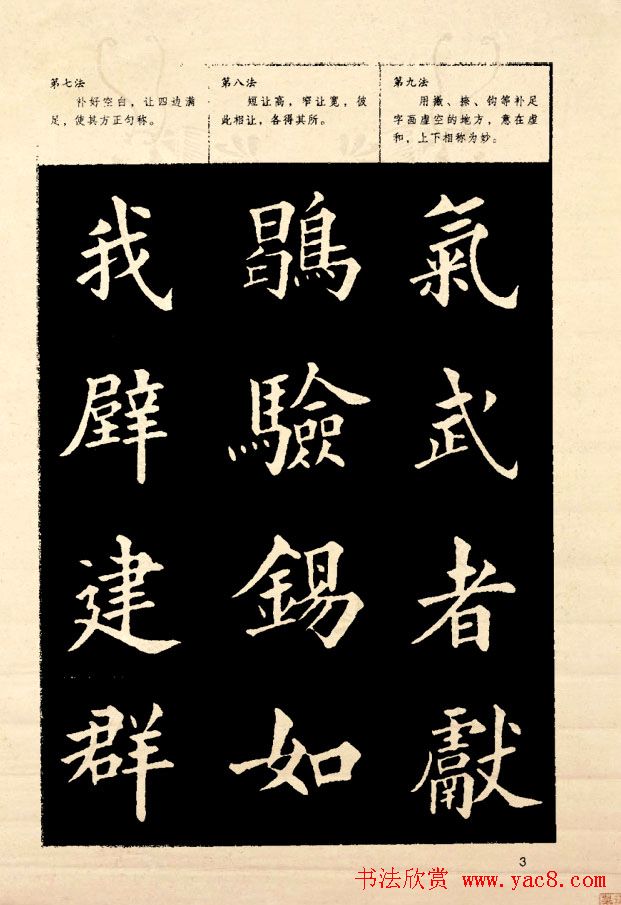 第七法
补好空白，让四边满
足，使其方正匀称。
第八法
短让高，窄让宽，彼
此相让，各得其所。
第九法
用撇、捺、钩等补足
字画虚空的地方，意在虚
和，上下相称为妙。
我
辟
建
群
鶡
驗
錫
如
氣
武
者
獻
3
书法欣赏 www.yac8.com